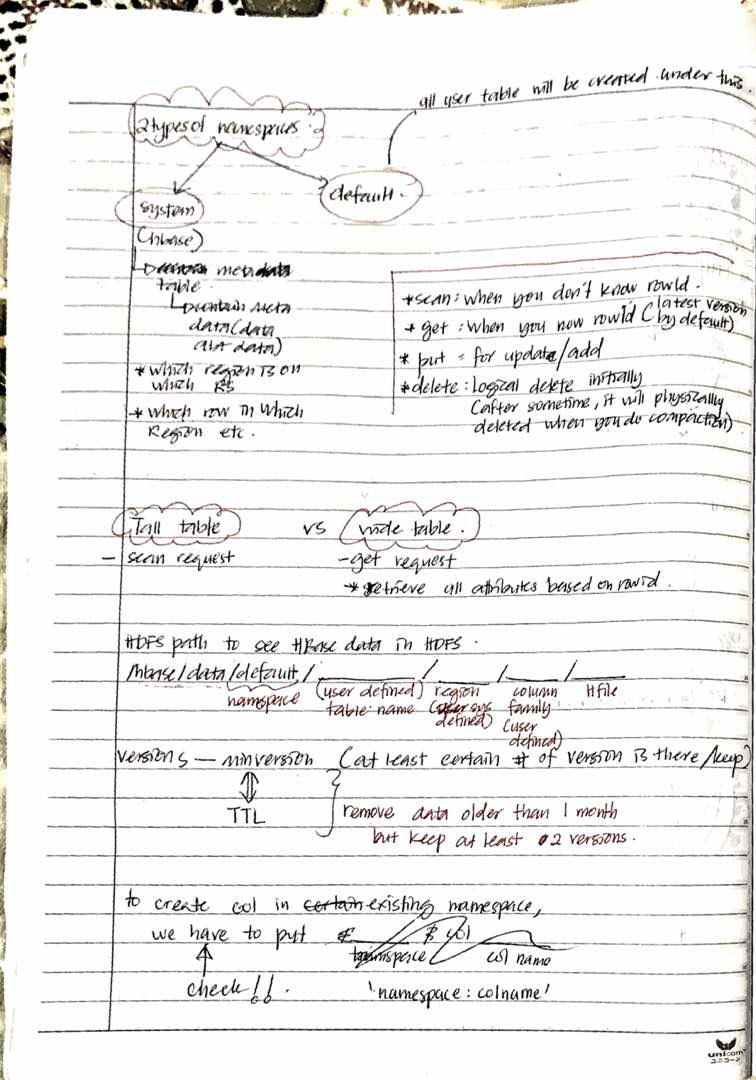 all user table will be created under this.
2 types of namespaces.
system
default.
(hbase)
contain meta data
table.
contain meta
data (data
data)
* which region is on
which RS
* which row in which
Region etc.
* scan: when you don't know rowid.
* get : when you now rowid (latest version
by default)
* put = for update/add
* delete : logical delete initially
(after sometime, it will physically
deleted when you do compaction)
Tall table vs wide table.
- scan request
- get request
* retrieve all attributes based on rowid.
HDFS path to see HBase data in HDFS.
/hbase/data/default/ / / /
namespace
(user defined)
table name
region
(sys
defined)
column
family
(user
defined)
Hfile
versions — minversion (at least certain # of version is there/keep)
TTL
remove data older than 1 month
but keep at least 2 versions.
to create col in certain existing namespace,
we have to put $ col
namespace col name
check!!.
'namespace: colname'
unicorn
ユニコーン